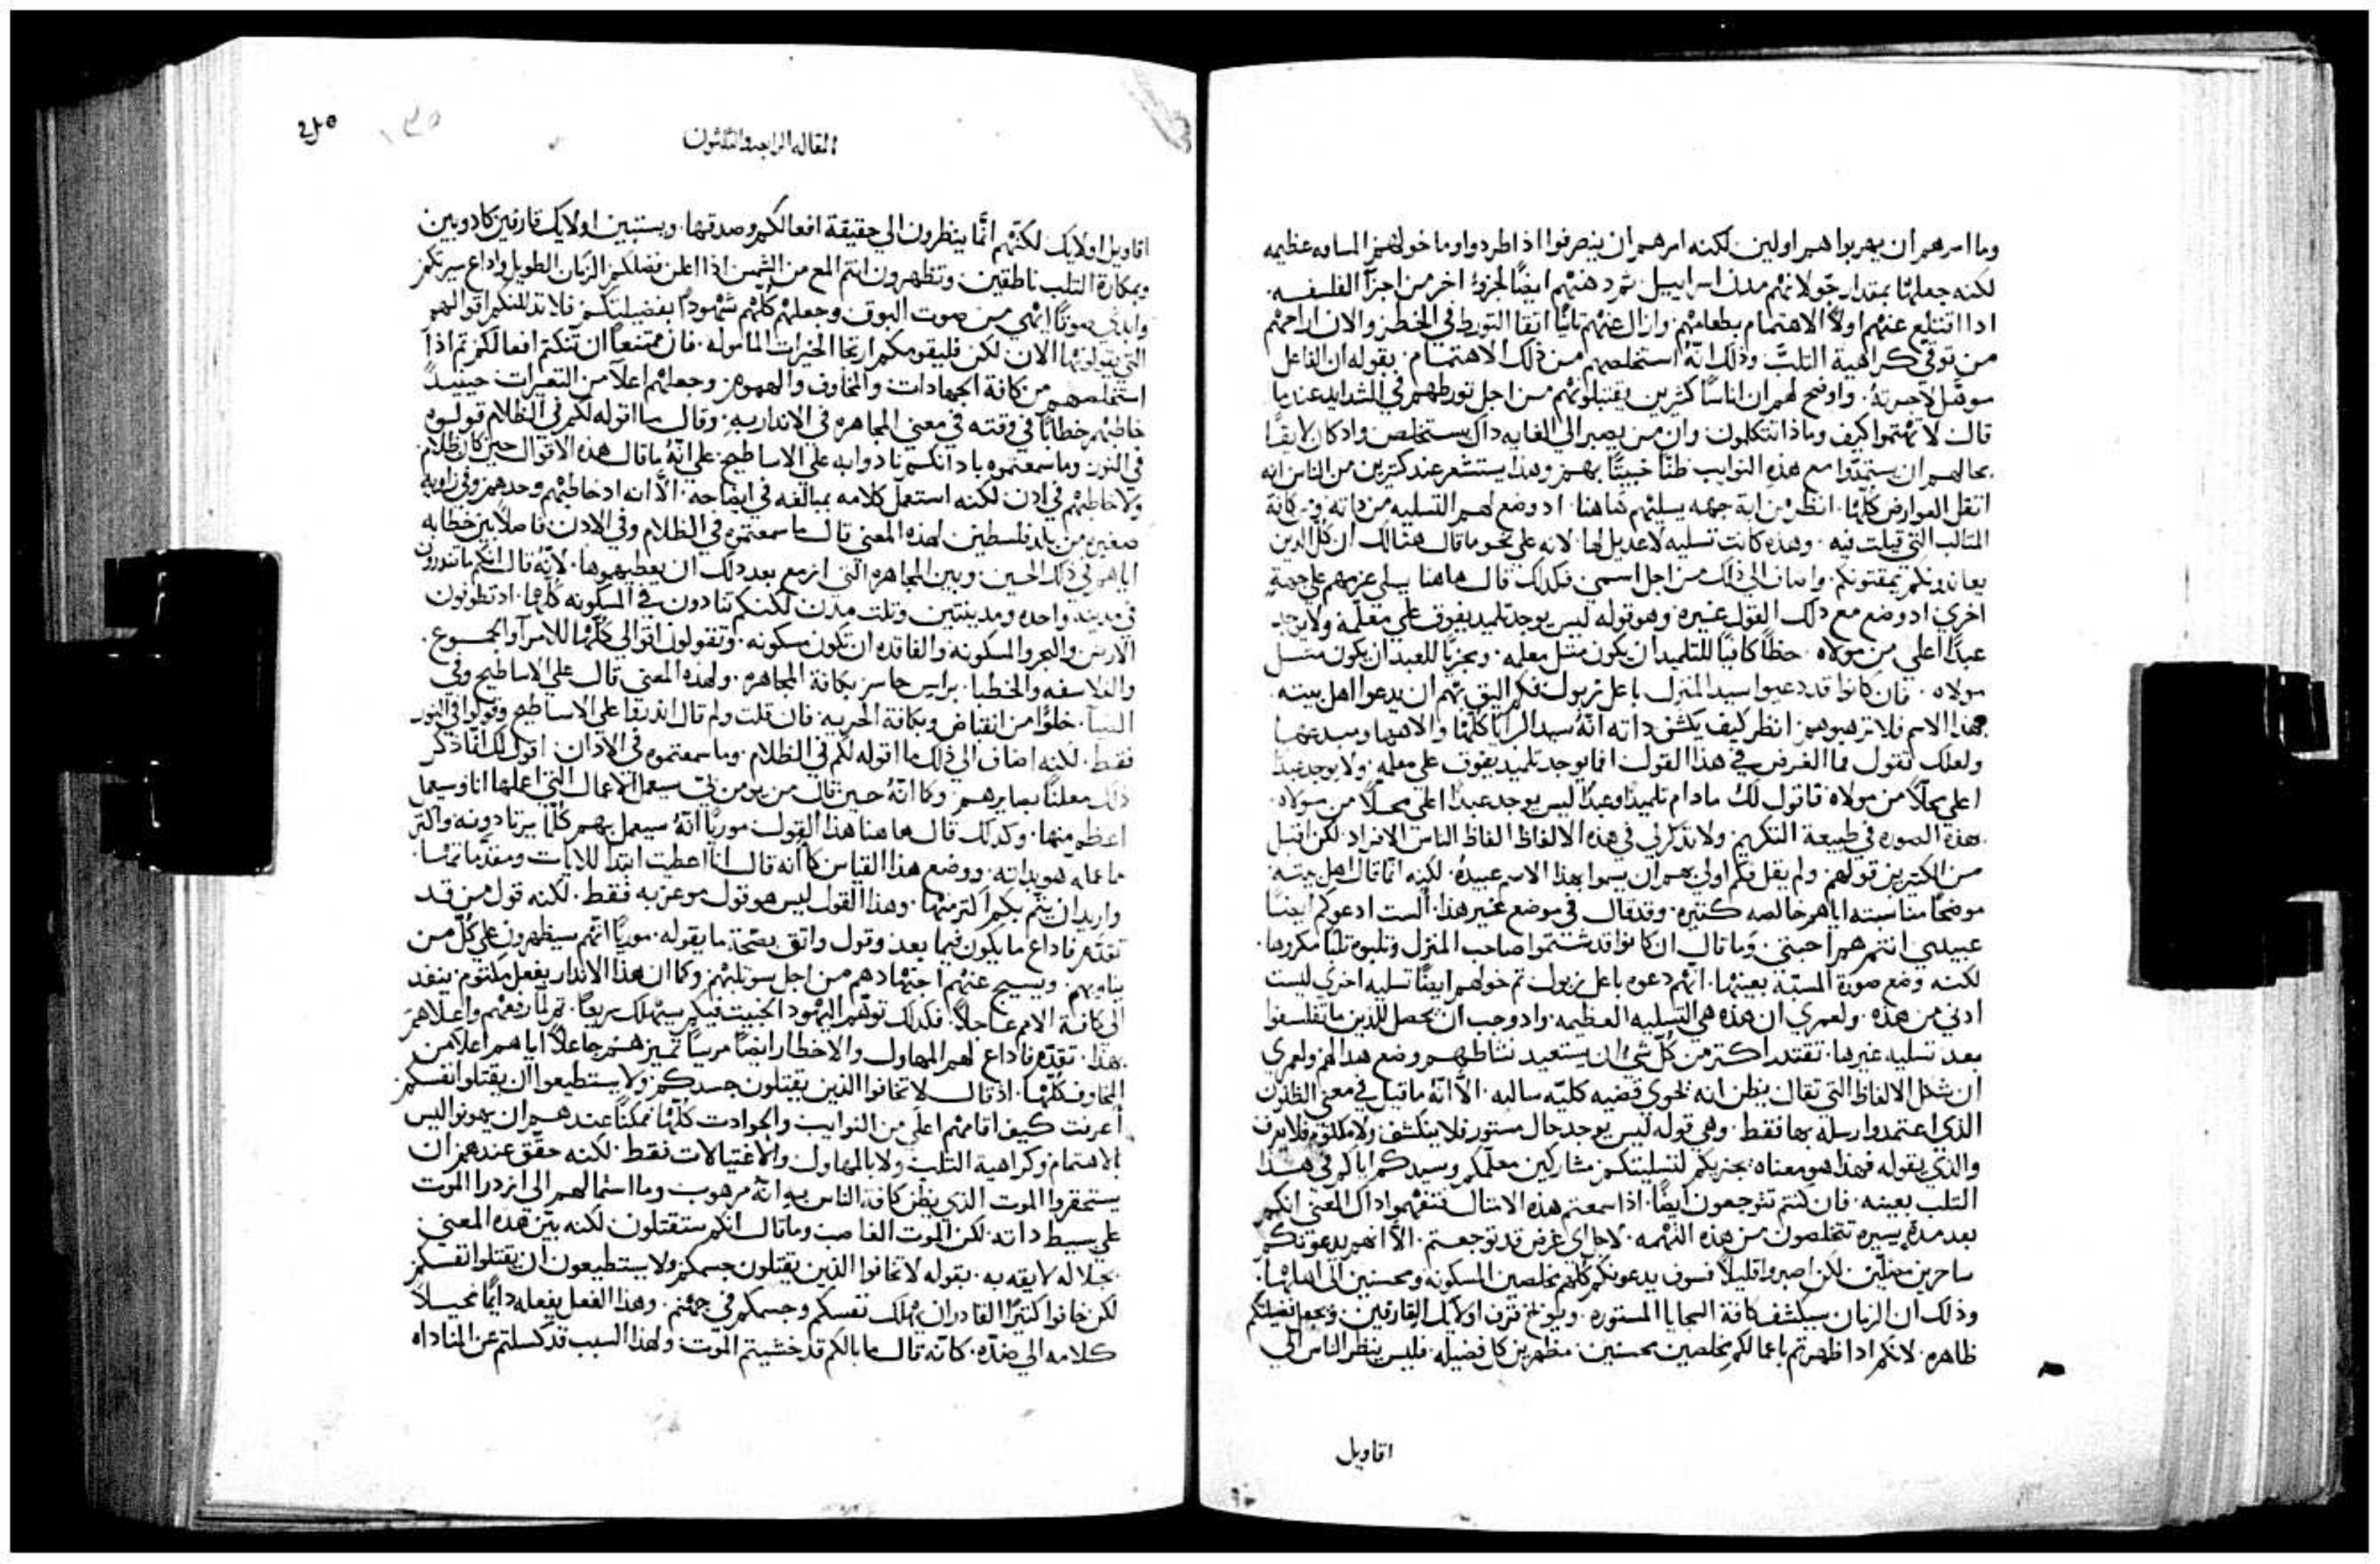 وما امرهم ان يهربوا هم اولين لكنه امرهم ان ينصرفوا اذا طردوا وما خولهم المسافه عظيمه
لكنه جعلها بمقدار جولانهم مدن اسراييل ثم دهنهم ايضًا لجزوٍ اخر من اجزآ الفلسفه
اذا اقتلع عنهم اولاً الاهتمام بطعامهم وازال عنهم ثانيًا اتقا التورط في الخطر والان اراحهم
من توقي كراهية الثلب وذلك انهُ استخلصهم من ذلك الاهتمام بقوله ان الفاعل
موهل لاجرتهُ واوضح لهم ان اناسًا كثيرين يقتبلونهم من اجل تورطهم في الشدايد عندما
قال لا تهتموا كيف وماذا تتكلمون وان من يصبر الي الغايه داك يستخلص واد كان لايقًا
بحالهم ان يستمدّوا مع هذه النوايب ظنًا خبيثًا بهم وهذا يستشعر عند كثيرين من الناس انه
اثقل العوارض كلها انظر من اية جهه يسليهم هاهنا اد وضع لهم التسليه من داته ومن كافة
المثالب التي قيلت فيه وهذه كانت تسليه لا عديل لها لانه علي نحو ما قال هنالك ان كل الدين
يعاندونكم يمقتونكم واضاف الي ذلك من اجل اسمي فكدلك قال هاهنا يسلي عزمهم علي جهةٍ
اخري اد وضع مع دلك القول غيره وهو قوله ليس يوجد تلميد يفوق علي معلمه ولا يوجد
عبدًا اعلي من مولاه حظًا كافيًا للتلميد ان يكون مثل معلمه ويجزيًا للعبد ان يكون مثل
مولاه فان كانوا قد دعيوا سيد المنزل باعل زبول فكم اليق بهم ان يدعوا اهل بيته
بهذا الاسم فلا ترهبوهم انظر كيف يكشف داته انهُ سيد البرايا كلها والاهها ومبدعها
ولعلك تقول فما الغرض في هذا القول افما يوجد تلميد يفوق علي معلمه ولا يوجد عبدًا
اعلي محلاً من مولاه فاقول لك ما دام تلميدًا وعبدًا ليس يوجد عبدًا اعلي محلاً من مولاه
بهذه الصوره في طبيعة التكريم ولا تدكر لي في هذه الالفاظ الفاظ الناس الافراد لكن اقتبل
من الكثيرين قولهم ولم يقل فكم اولي بهم ان يسموا بهذا الاسم عبيدهُ لكنه انما قال اهل بيته
موضحًا مناسبته اياهم خالصه كثيره وقد قال في موضع غير هذا الست ادعوكم ايضًا
عبيدي انتم هم احبتي وما قال ان كانوا قد شتموا صاحب المنزل وثلبوه ثلبًا مكررها
لكنه وضع صورة المسبّة بعينها انهم دعوه باعل زبول ثم خولهم ايضًا تسليه اخري ليست
ادني من هذه ولعمري ان هذه هي التسليه العظيمه وادوجب ان يحصل للذين ما تفلسفوا
بعد تسليه غيرها تقتدر اكثر من كل شيٍ ان يستعيد نشاطهم وضع هدا لهم ولعمري
ان شكل الالفاظ التي تقال يظن انه يحوي قضيه كليّه سالبه الاّ انهُ ما قيل في معني الظنون
الذي اعتمدوا رسله بها فقط وهي قوله ليس يوجد حال مستور فلا ينكشف ولا مكتوم فلا يعرف
والذي يقوله فهذا هو معناه يجزيكم لتسليتكم مشاركين معلمكم وسيدكم اياكم في هذا
الثلب بعينه فان كنتم تتوجعون ايضًا اذا سمعتم هذه الامثال فتفهموا داك المعني انكم
بعد مدةٍ يسيره تتخلصون من هذه التهمه لاجل اي غرض قد توجعتم الاّ انهم يدعونكم
ساحرين مضلين لكن اصبروا قليلاً فسوف يدعونكم كلهم مخلصين المسكونه ومحسنين الي اهلها
وذلك ان الزمان سيكشف كافة السجايا المستوره ويوبخ قرف اوليك القارفين ويجعل فضيلتكم
ظاهره لانكم اذا ظهرتم باعمالكم مخلصين محسنين مظهرين كل فضيله فليس ينظر الناس الي
اقاويل
المقاله الرابعه والثلثون
اقاويل اولايك لكنهم انما ينظرون الي حقيقة افعالكم وصدقها ويستبين اولايك قارفين كادوبين
وبمكارة الثلب ناطقين وتظهرون انتم المع من الشمس اذا اعلن فضلكم الزمان الطويل واداع سيرتكم
وابدي صوتًا ابهي من صوت البوق وجعلهم كلهم شهودًا بفضيلتكم فلا تدللنكم اقوالهم
التي يقولونها الان لكن فليقومكم ارتجا الخيرات المامولة فان ممتنعًا ان تنكتم افعالكم ثم اذا
استخلصهم من كافة الجهادات والمخاوف والهموم وجعلهم اعلا من التعيرات حينيدٍ
خاطبهم خطابًا في وقته في معني المجاهره في الاندار به وقال ما اقوله لكم في الظلام قولوه
في النور وما سمعتموه باداننكم نادوا به علي الاساطيح علي انّهُ ما قال هذه الاقوال حين كان ظلام
ولا خاطبهم في ادن لكنه استعمل كلامه بمبالغه في ايضاحه الاّ انه اد خاطبهم وحدهم وفي زاوية
صغيره من بلد فلسطين لهذه المعني قال ما سمعتموه في الظلام وفي الادن فاصلاً بين خطابه
اياهم في ذلك الحين وبين المجاهره التي ازمع بعد دلك ان يعطيهموها لانّهُ قال انكم ما تندرون
في مدينه واحده ومدينتين وثلث مدن لكنكم تنادون في المسكونه كلها اد تطوفون
الارض والبحر والمسكونة والفاقده ان تكون مسكونه وتقولون اقوالي كلها للامرآ والجموع
والفلاسفه والخطبا براس حاسر بكافة المجاهره ولهذه المعني قال علي الاساطيح وفي
الضيآ خلوًا من انقباض وبكافة الحريه فان قلت ولم قال اندروا علي الاساطيح وقولوا في النور
فقط لكنه اضاف الي ذلك ما اقوله لكم في الظلام وما سمعتموه في الادان اقول لك انما ذكر
ذلك معلنًا بصايرهم وكما انّهُ حين قال من يومن بي سيعمل الاعمال التي اعملها انا وسيعمل
اعظم منها وكدلك قال هاهنا هذا القول موريًا انهُ سيعمل بهم كلما يرتادونه واكثر
مما عمله هو بداته ووضع هذا القياس كانه قال انا اعطيت ابتدا للايات ومقدماتها
واريد ان يتم بكم اكثر منها وهذا القول ليس هو قول موعز به فقط لكنه قول من قد
تقدم فاداع ما يكون فيما بعد وقول واثق بصحة ما يقوله موريًا انهم سيظهرون علي كل من
يناويهم ويسيح عنهم اجتهادهم من اجل سوثلبهم وكما ان هذا الاندار بفعل مكتوم ينفد
الي كافة الامم عاجلاً فكدلك توهم اليهود الخبيث فيكم سيهلك سريعًا ثم لما رفعهم واعلاهم
بهذا تقدّم فاداع لهم المهاول والاخطار ايضًا مريشًا تميزهم جاعلاً اياهم اعلا من
المخاوف كلها اذ قال لا تخافوا الذين يقتلون جسدكم ولا يستطيعوا ان يقتلوا نفسكم
أعرفت كيف اقامهم اعلي من النوايب والحوادث كلها ممكنًا عندهم ان يهونوا ليس
الاهتمام وكراهية الثلب ولا بالمهاول والاغتيالات فقط لكنه حقق عندهم ان
يستحقروا الموت الذي يظن كافة الناس به انّهُ مرهوب وما استمالهم الي ازدرا الموت
علي بسيط داته لكن الموت الغاصب وما قال انكم ستقتلون لكنه بيّن هذه المعني
بجلاله لايقه به بقوله لا تخافوا الذين يقتلون جسمكم ولا يستطيعون ان يقتلوا نفسكم
لكن خافوا كثيرًا القادر ان يهلك نفسكم وجسمكم في جهنم وهذا الفعل يفعله دايمًا محيلاً
كلامه الي ضدّه كانه قال ما بالكم قد خشيتم الموت ولهذا السبب قد كسلتم عن المناداه